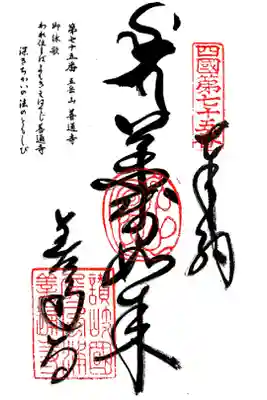 四國第七十五番
奉納
薬師如来
善通寺
讃岐國
善通寺
第七十五番 五岳山 善通寺
御詠歌
われ住まばよもきえはてじ善通寺
深きちかいの法のともしび